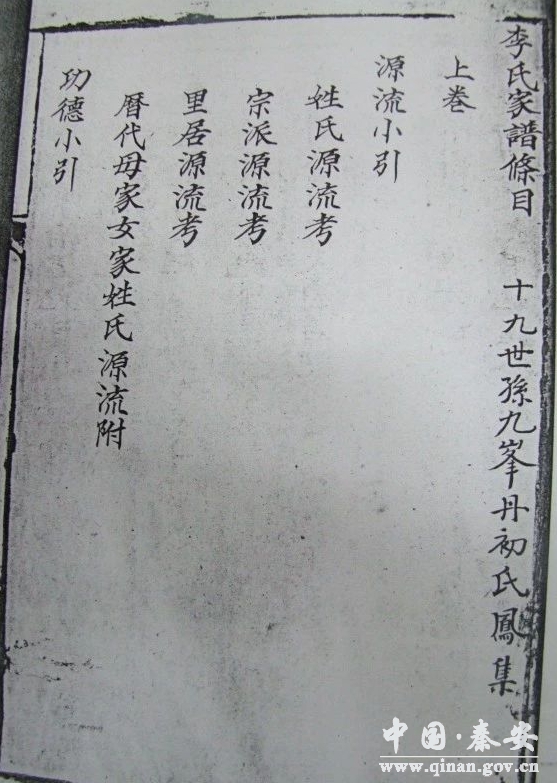 李氏家譜條目 十九世孫九峯丹初氏鳳集
上巻
源流小引
姓氏源流考
宗派源流考
里居源流考
曆代母家女家姓氏源流附
功德小引
中国·秦安
www.qinan.gov.cn